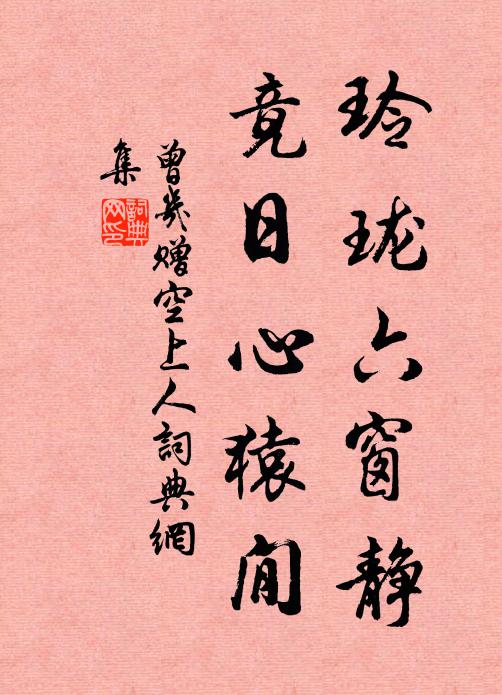 玲珑六窗静
竟日心猿闲
曾几赠空上人詞典網
集
詞典网印